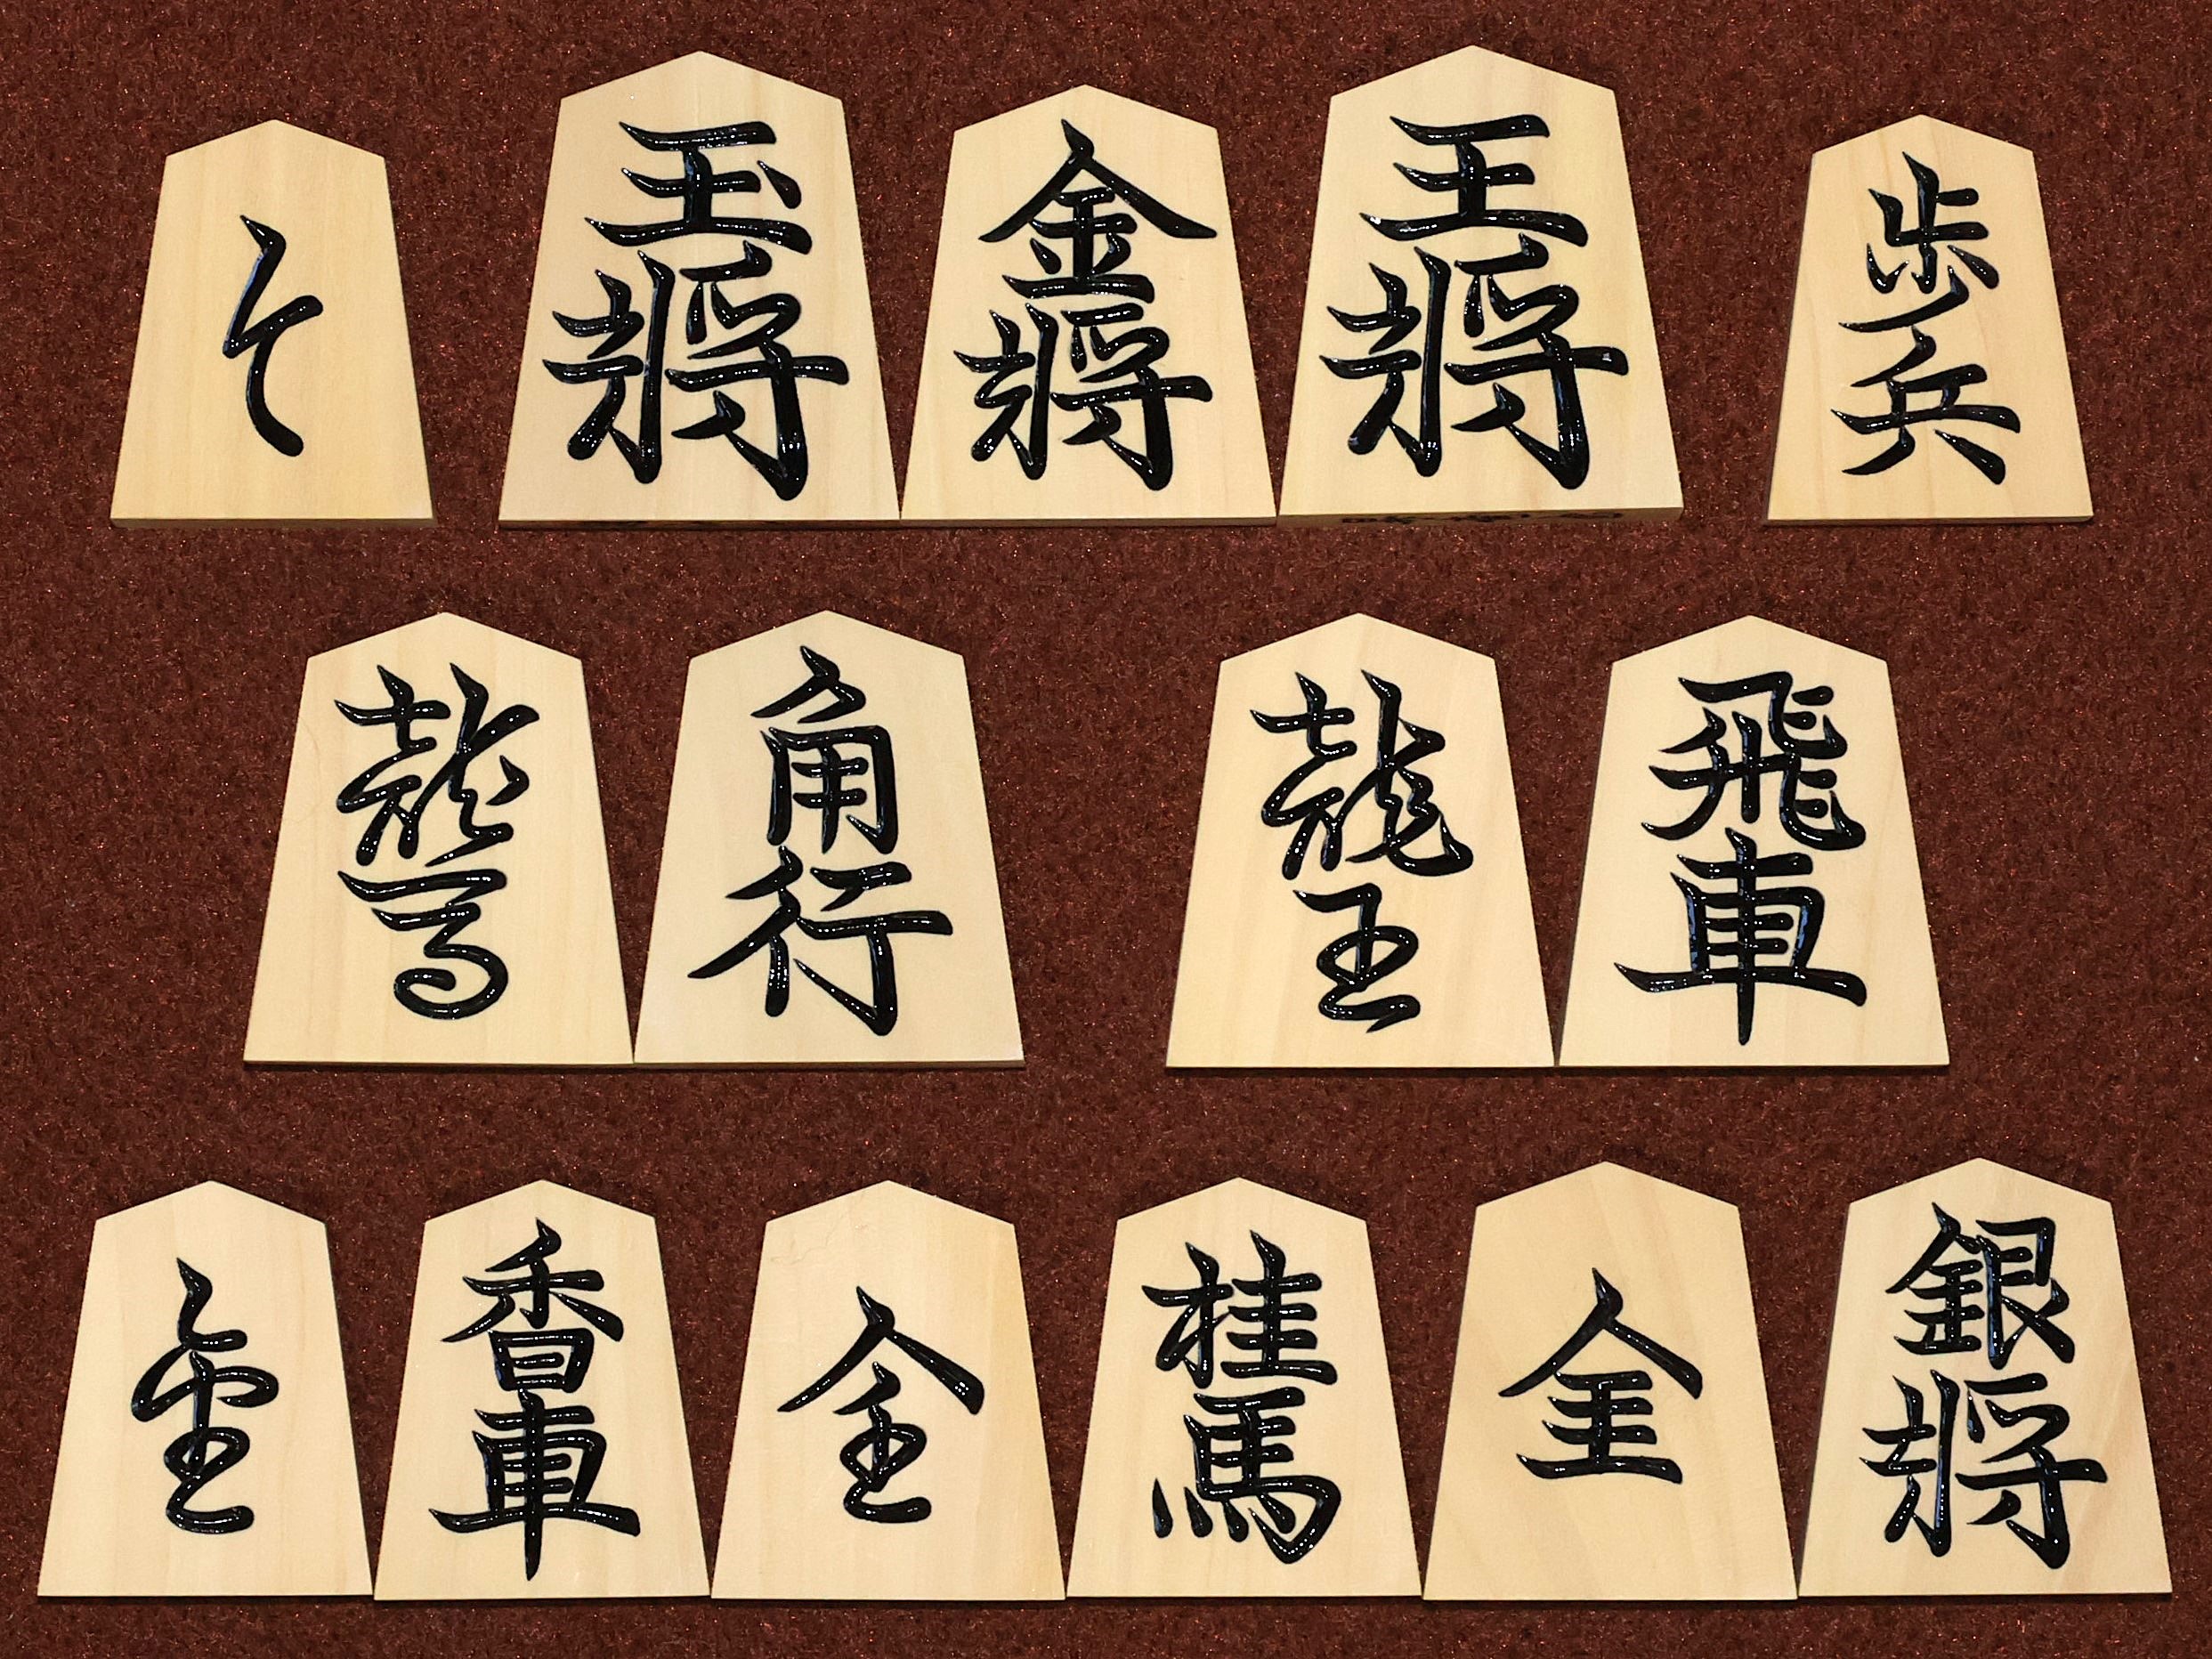 と
玉將
金將
王將
歩兵
龍馬
角行
龍王
飛車
金
香車
金
桂馬
金
銀將